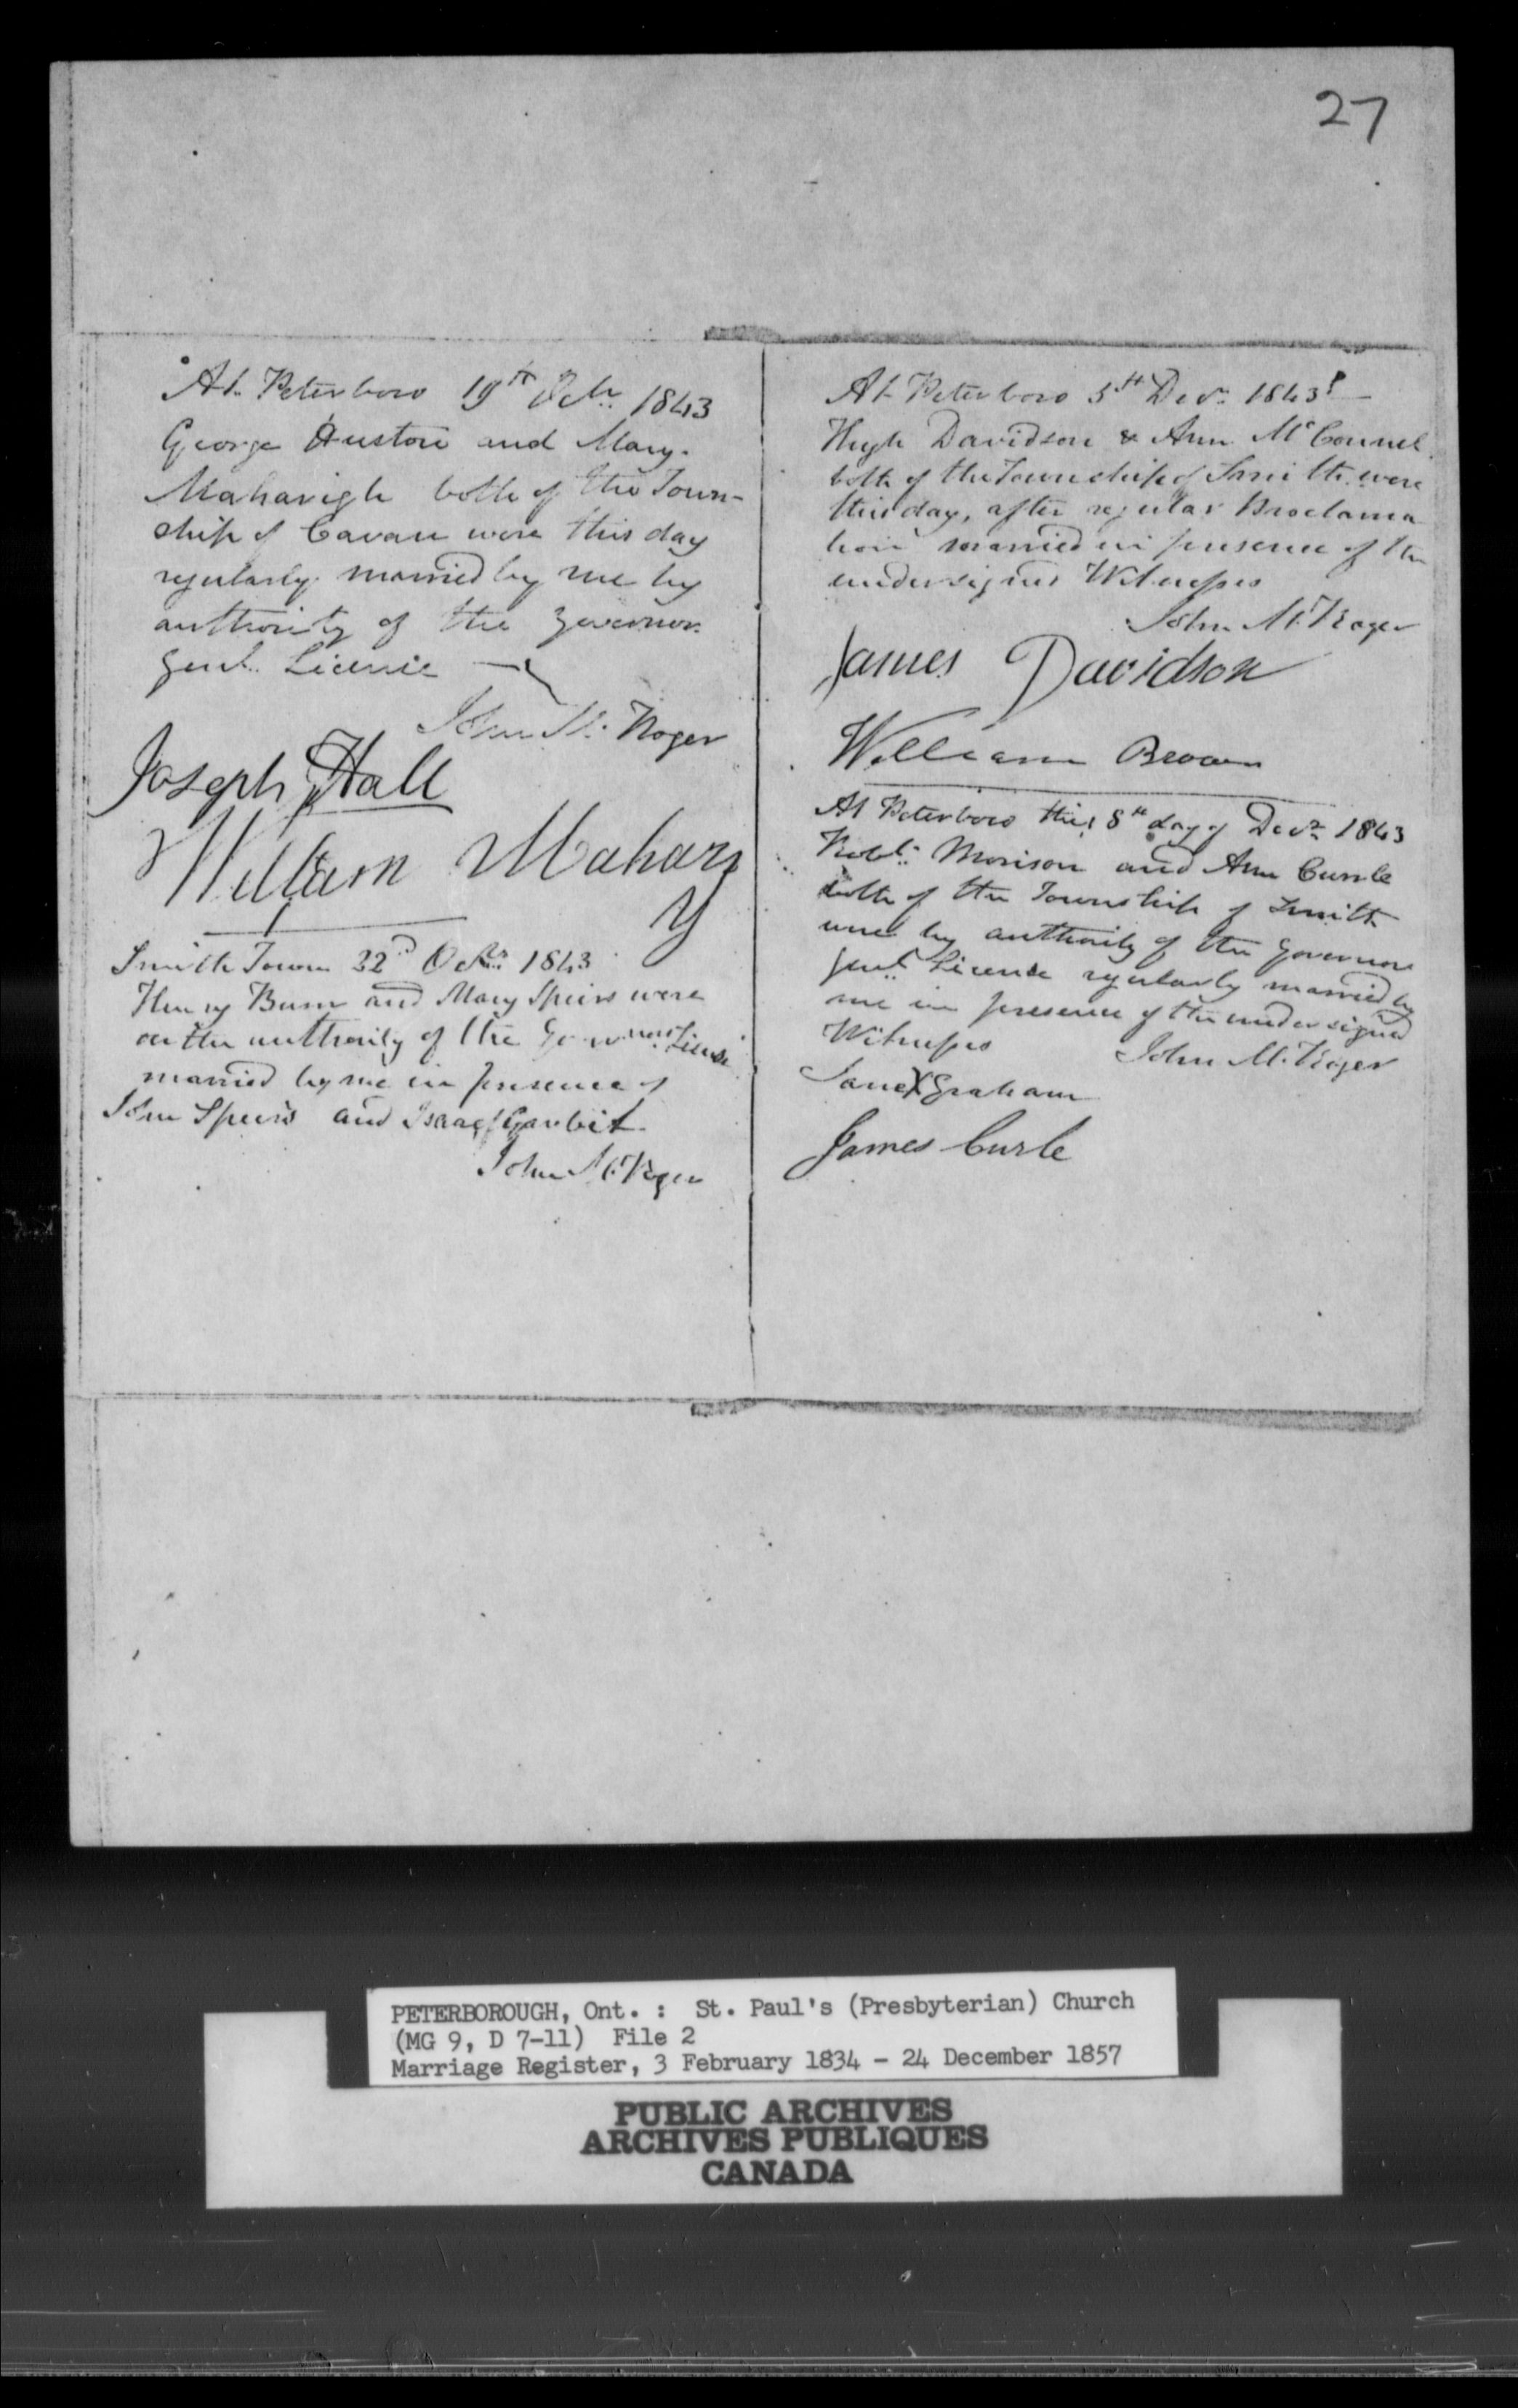 27
At Peterboro 19th Octr. 1843
George Huston and Mary
Mahavigh both of the Town-
ship of Cavan were this day
regularly married by me by
authority of the Governor
Genl. License
John M. Roger
Joseph Hall
William Mahary
y
Smith Town 22d Octr. 1843
Henry Bum and Mary Speirs were
on the authority of the Governors License
married by me in presence of
John Speirs and Isaac Garbit.
John M. Roger
At Peterboro 5th Decr. 1843
Hugh Davidson & Ann McConnel
both of the Township of Smith were
this day, after regular Proclama
tion married in presence of the
undersigned Witnesses
John M. Roger
James Davidson
William Brown
At Peterboro this 8th day of Decr. 1843
Robt. Morison and Ann Curle
both of the Township of Smith
were by authority of the Governor
Genl. License regularly married by
me in presence of the undersigned
Witnesses John M. Roger
Jane X Graham
James Curle
PETERBOROUGH, Ont. : St. Paul's (Presbyterian) Church
(MG 9, D 7-11) File 2
Marriage Register, 3 February 1834 - 24 December 1857
PUBLIC ARCHIVES
ARCHIVES PUBLIQUES
CANADA